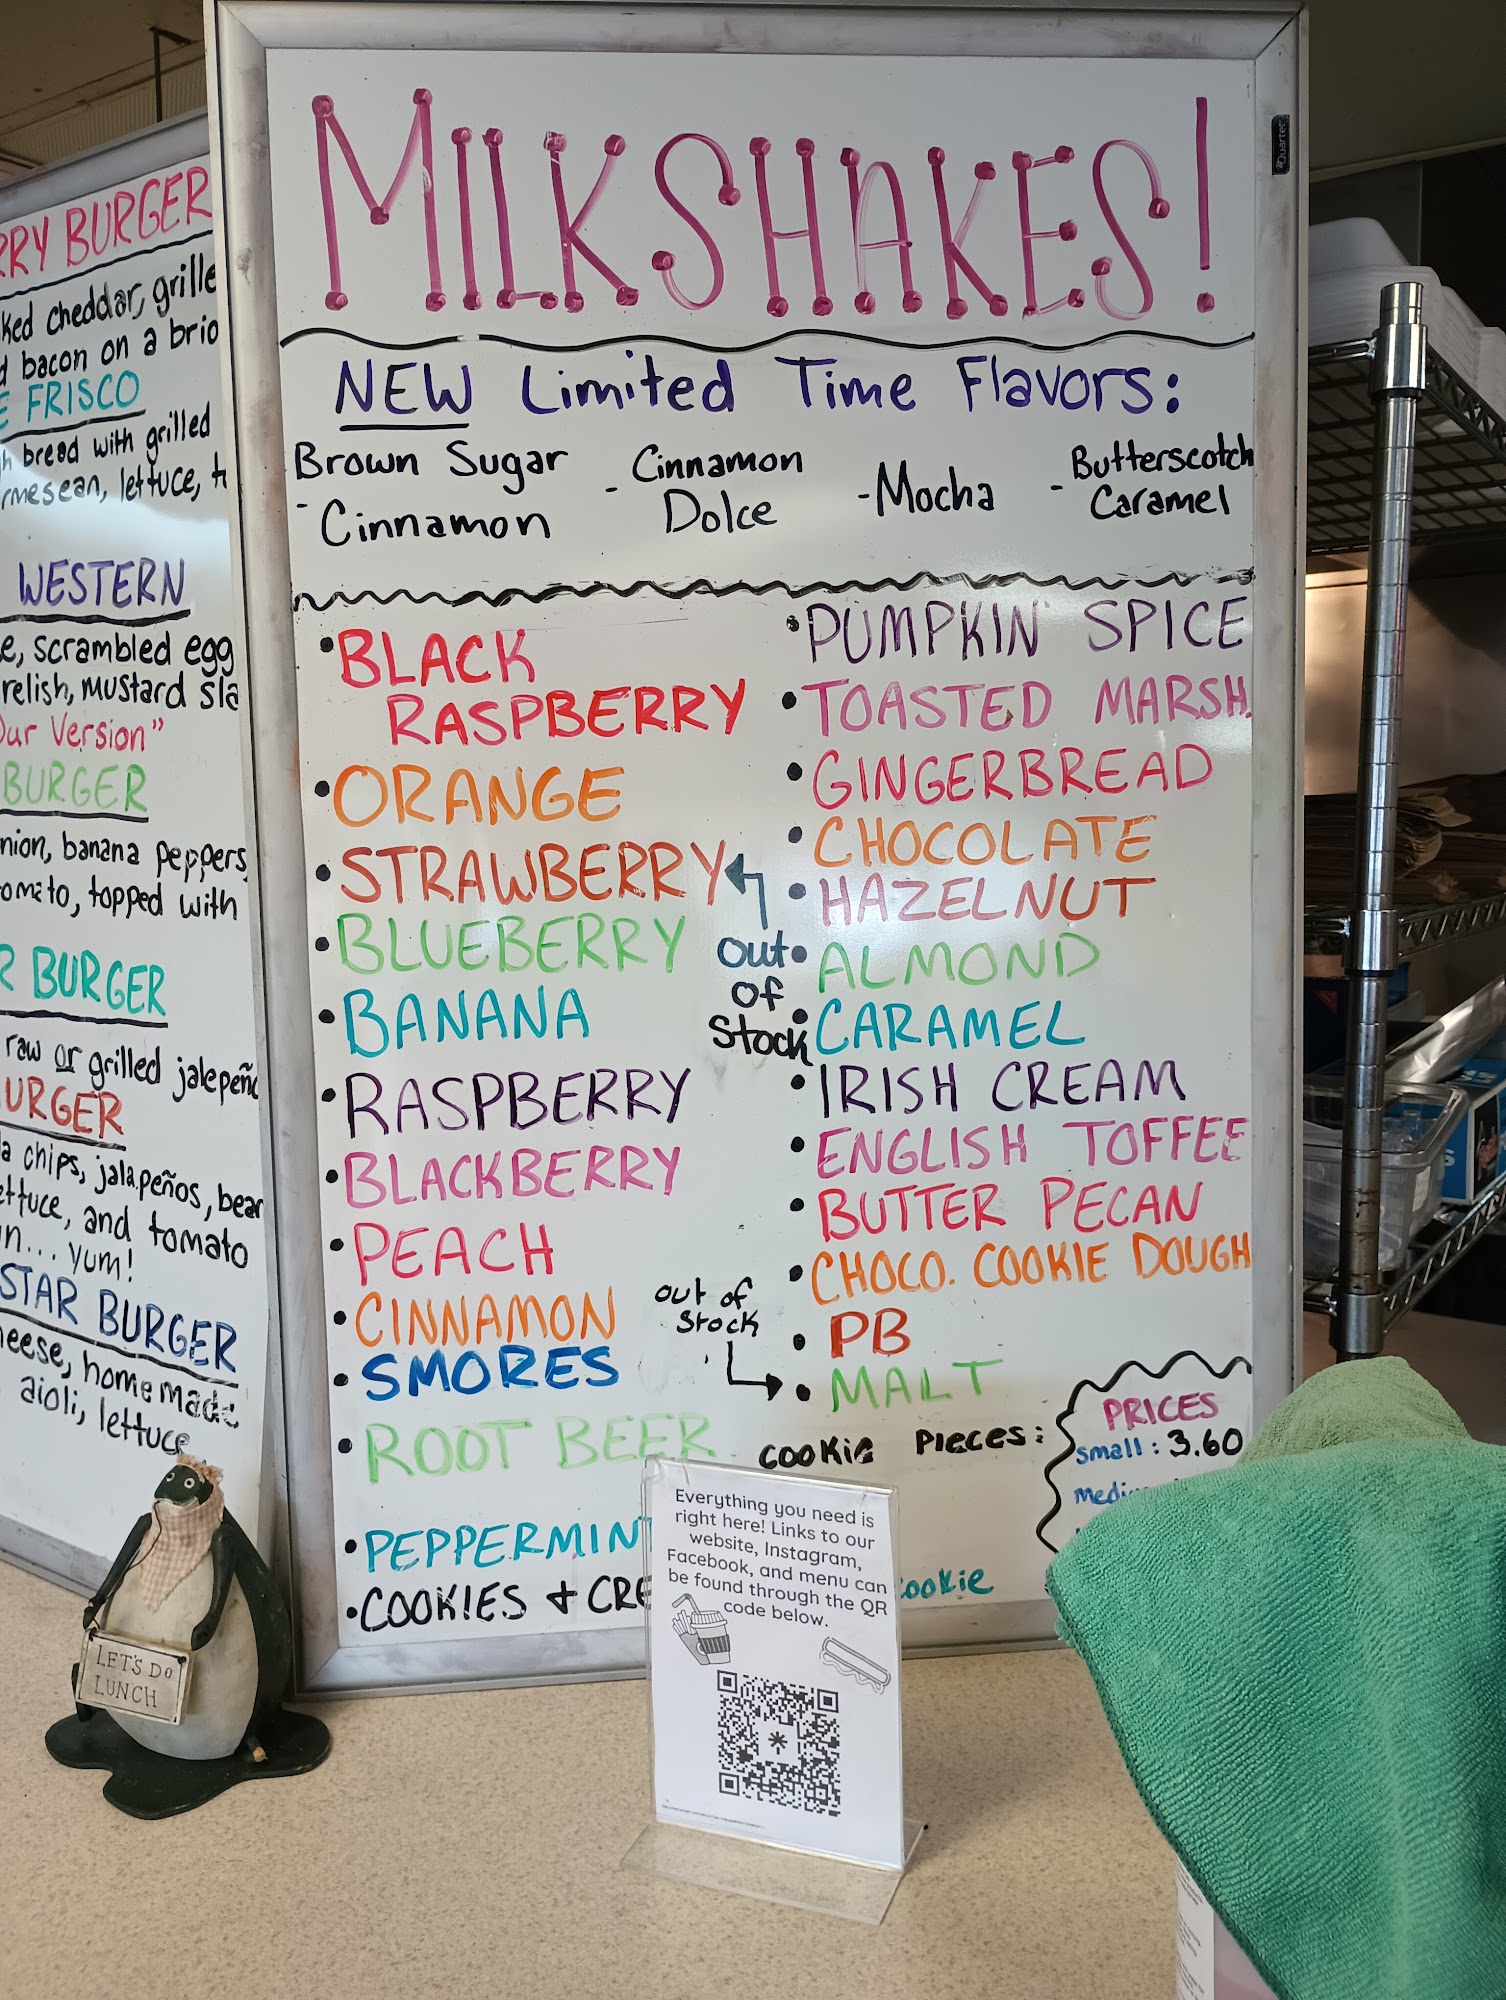 MILKSHAKES!
NEW Limited Time Flavors:
Brown Sugar
- Cinnamon
- Cinnamon
Dolce
-Mocha
- Butterscotch
Caramel
•BLACK
RASPBERRY
•ORANGE
•STRAWBERRY
•BLUEBERRY
•BANANA
•RASPBERRY
•BLACKBERRY
•PEACH
•CINNAMON
•SMORES
•ROOT BEER
•PEPPERMIN
•COOKIES + CRE
out
of
Stock
out of
Stock
•PUMPKIN SPICE
•TOASTED MARSH.
•GINGERBREAD
•CHOCOLATE
•HAZELNUT
•ALMOND
•CARAMEL
•IRISH CREAM
•ENGLISH TOFFEE
•BUTTER PECAN
•CHOCO. COOKIE DOUGH
•PB
•MALT
COOKiE PIECES:
cookie
PRICES
Small: 3.60
RRY BURGER
ked cheddar, grille
d bacon on a brio
E FRISCO
h bread with grilled
rmesean, lettuce, t
WESTERN
e, scrambled egg
relish, mustard sla
Our Version"
BURGER
nion, banana peppers,
omato, topped with
R BURGER
raw or grilled jalepeño
URGER
a chips, jalapeños, bear
ettuce, and tomato
n... yum!
STAR BURGER
heese, homemade
aioli, lettuce
LET'S DO
LUNCH
Everything you need is
right here! Links to our
website, Instagram,
Facebook, and menu can
be found through the QR
code below.
Quartet